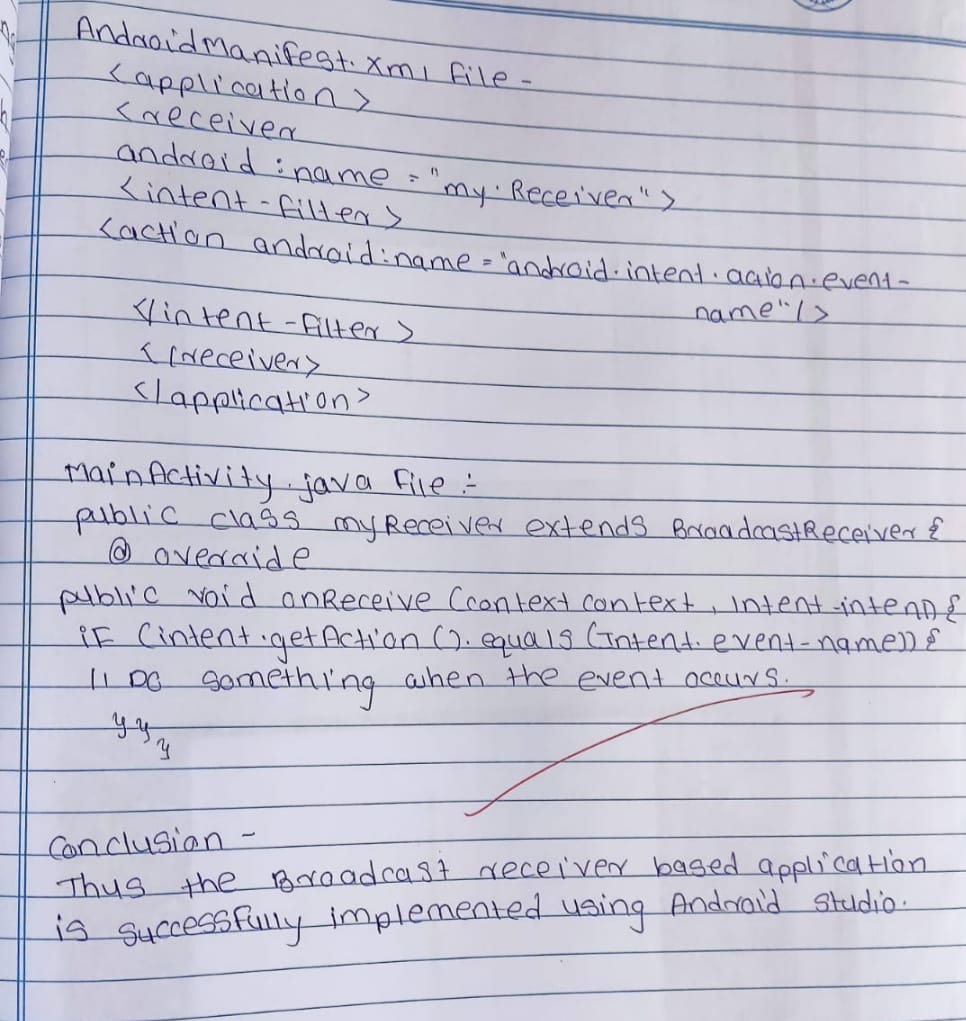 AndroidManifest.xml File -
<application>
<receiver
android:name="my.Receiver">
<intent-filter>
<action android:name="android.intent.action.event-
name"/>
</intent-filter>
</receiver>
</application>
MainActivity.java File :-
public class myReceiver extends BroadcastReceiver {
@ override
public void onReceive (context context, Intent intent) {
if (intent.getAction().equals(Intent.event-name)) {
// Do something when the event occurs.
}}
}
Conclusion -
Thus the Broadcast receiver based application
is successfully implemented using Android Studio.